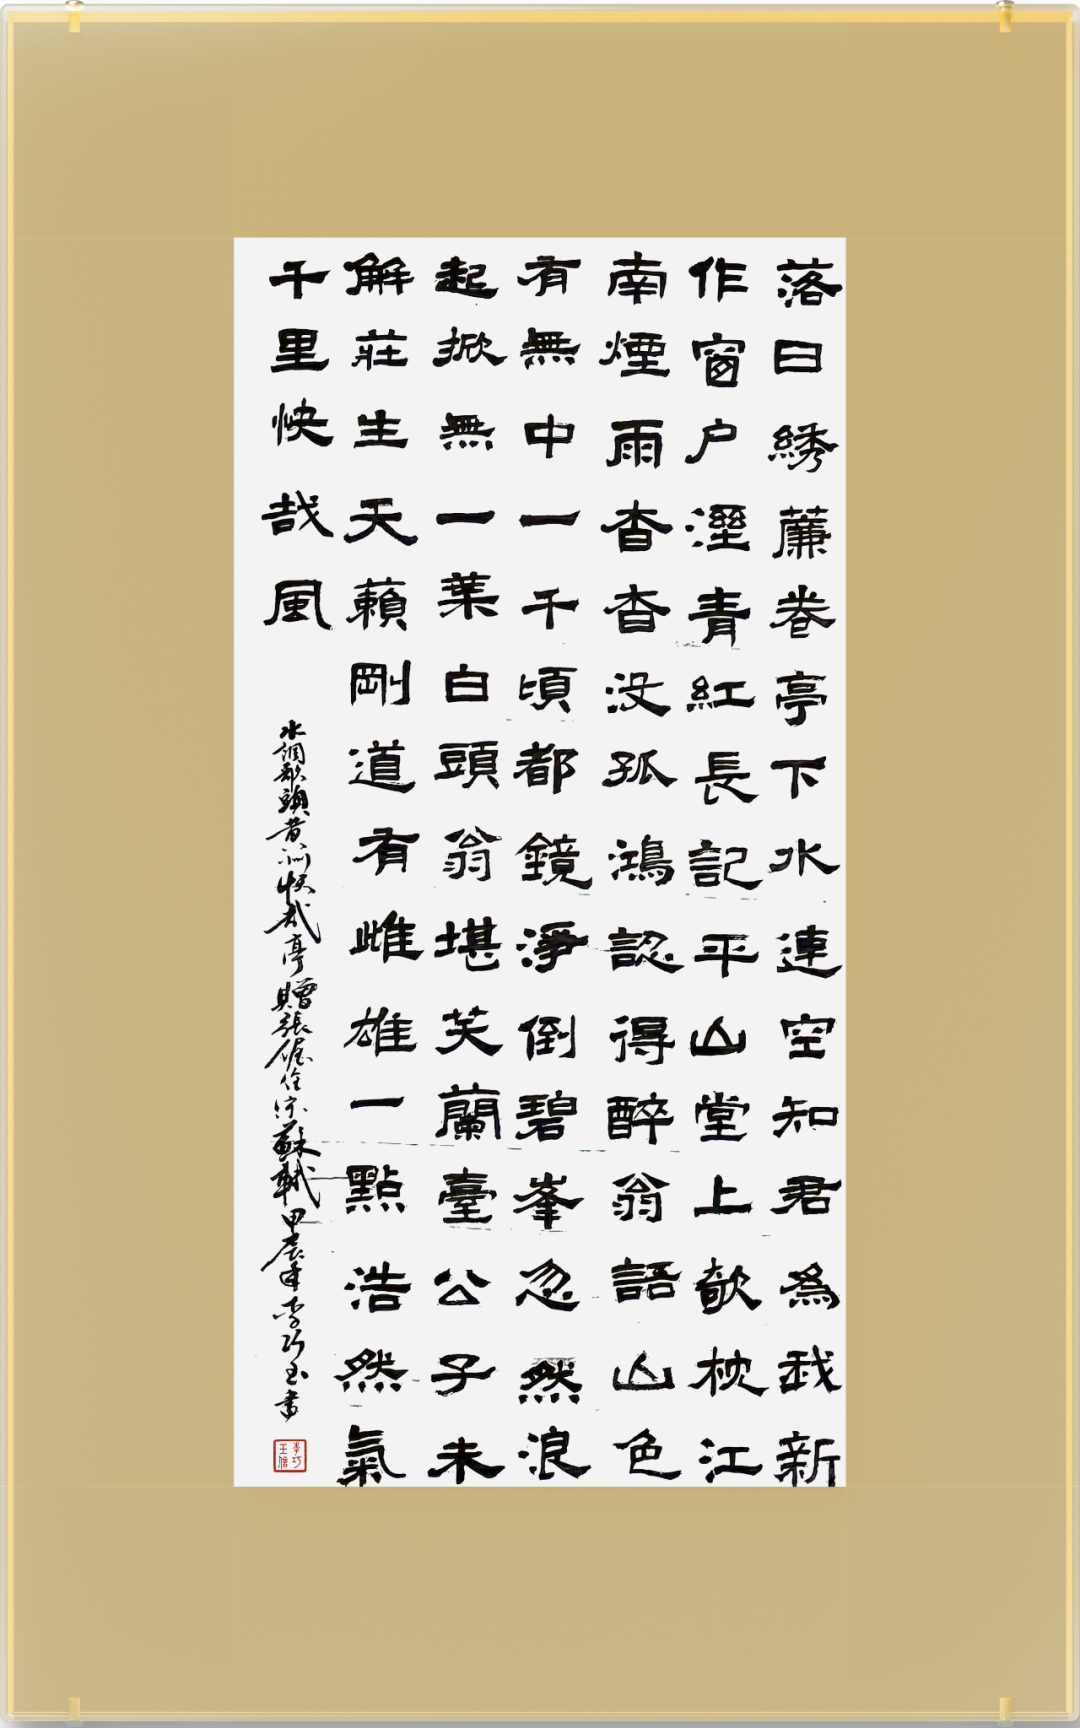 落日綉薕卷亭下水連空知君為我新
作窗户溼青紅長記平山堂上欹枕江
南煙雨杳杳没孤鴻認得醉翁語山色
有無中一千頃都鏡淨倒碧峯忽然浪
起掀無一葉白頭翁堪芺蘭臺公子未
解莊生天籟剛道有雌雄一點浩然氣
千里快哉風
水調歌頭黄州快哉亭贈張偓佺宋蘇軾甲辰年李巧玉書
李巧
玉信